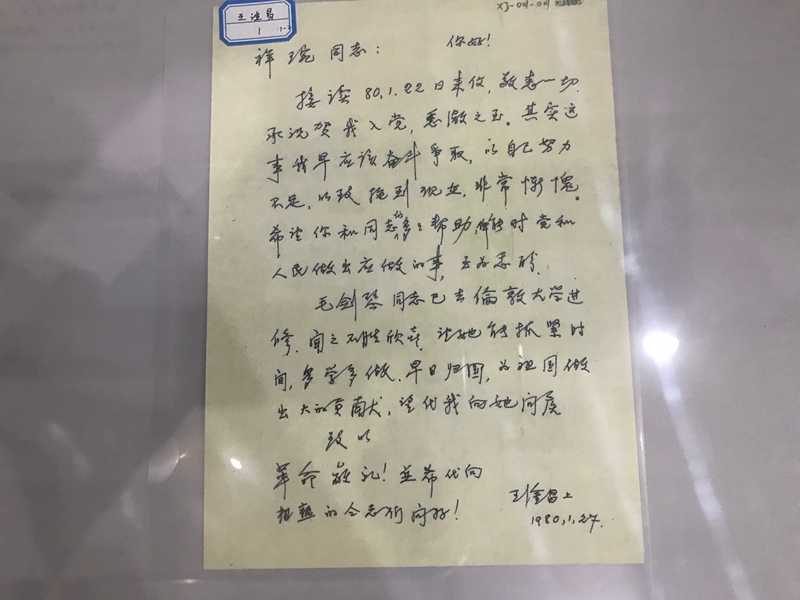 王淦昌
1
XJ-04-04
祥琬同志： 你好！
接读80.1.22日来信，敬悉一切
承祝贺我入党，感激之至。其实这
事我早应该奋斗争取，以自己努力
不足，以致拖到现在，非常惭愧。
希望你和同志们多多帮助，能对党和
人民做出应做的事，至为恳祷
毛剑琴同志已去伦敦大学进
修，闻之不胜欣喜，望她能抓紧时
间，多学多做，早日归国，为祖国做
出大的贡献，望代我向她问候
致以
革命敬礼！并希代向
相熟的同志们问好！
王淦昌上
1980.1.27.